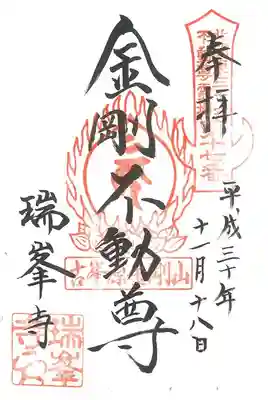 奉拝
平成三十年
十一月十八日
金剛不動尊
瑞峯寺